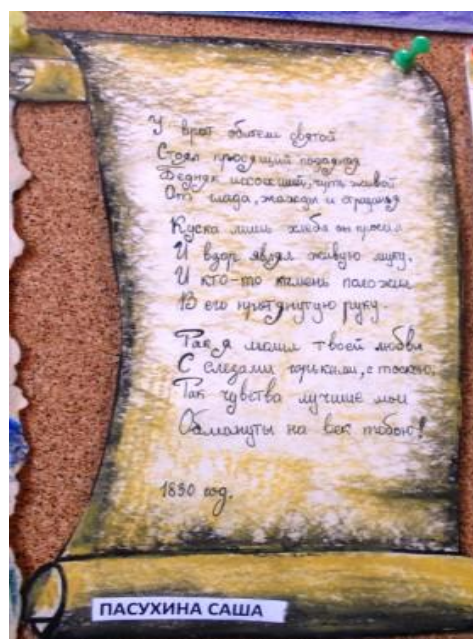 У врат обители святой
Стоял просящий подаянья
Бедняк иссохший, чуть живой
От глада, жажды и страданья
Куска лишь хлеба он просил
И взор являл живую муку,
И кто-то камень положил
В его протянутую руку.
Так я молил твоей любви
С слезами горькими, с тоскою,
Так чувства лучшие мои
Обмануты на век тобою!
1830 год.
ПАСУХИНА САША